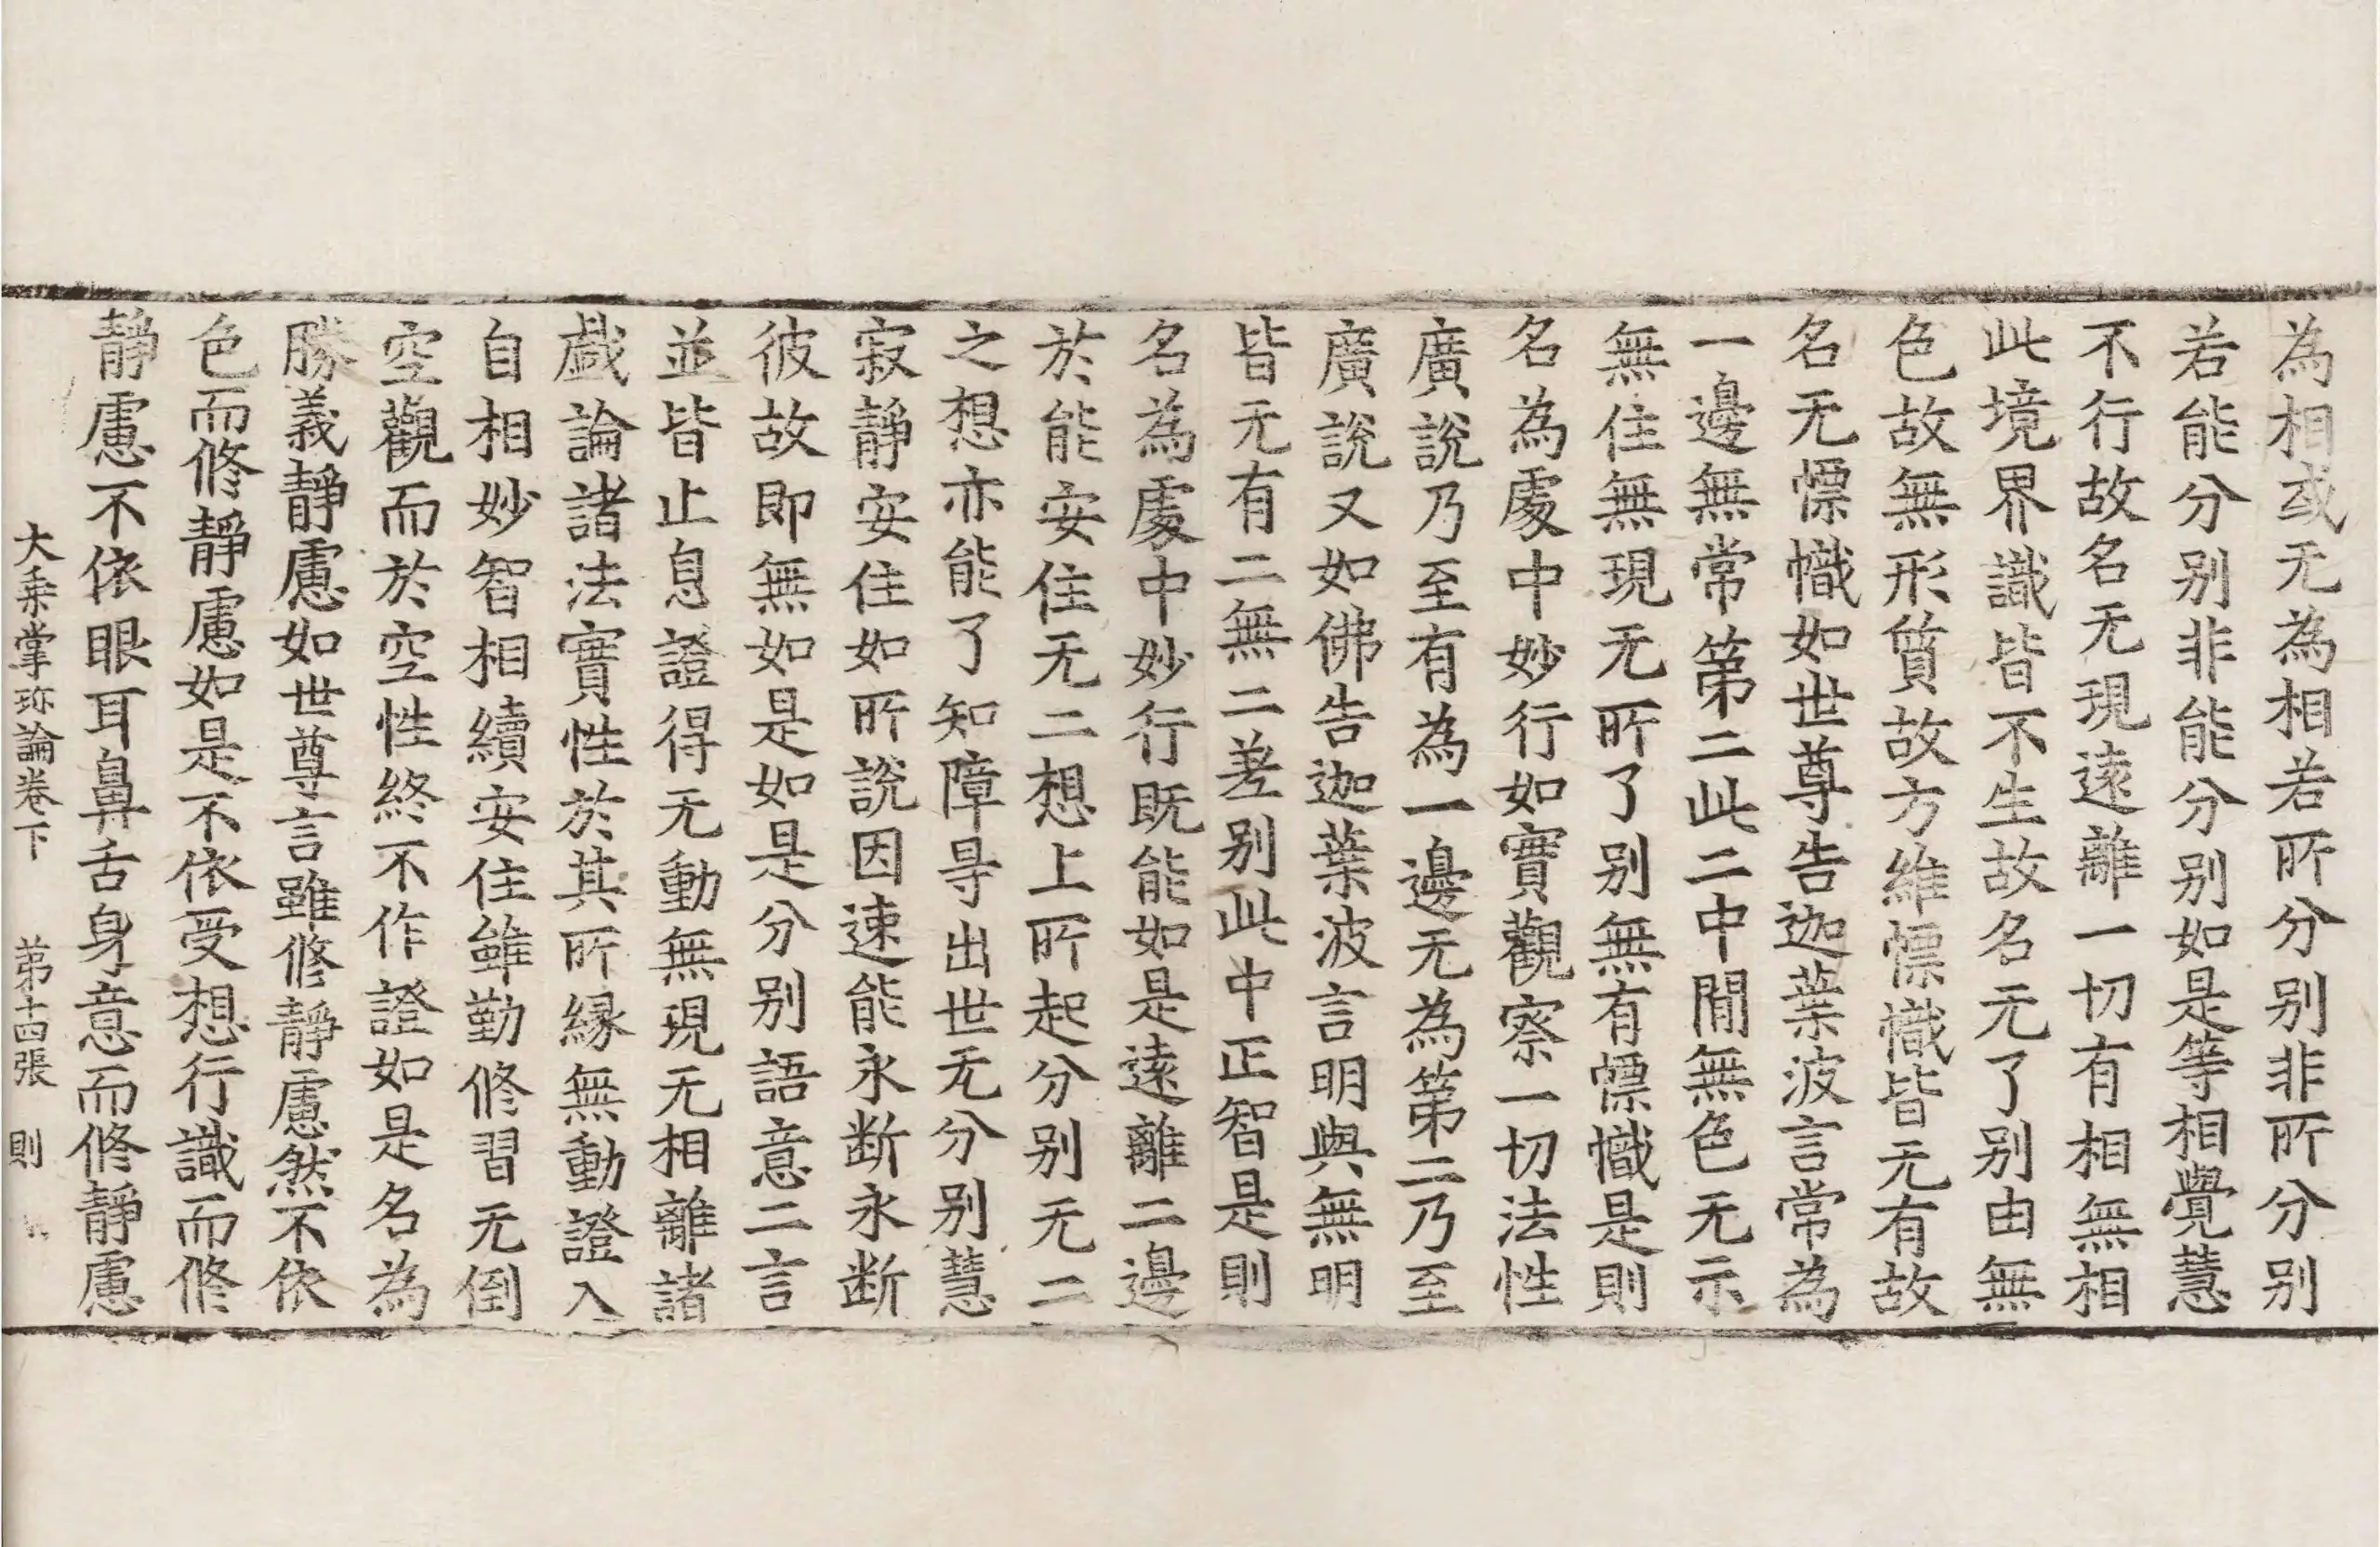 為相或无為相若所分别非所分别
若能分别非能分别如是等相覺慧
不行故名无現遠離一切有相無相
此境界識皆不生故名无了别由無
色故無形質故方維慓幟皆无有故
名无慓幟如世尊告迦葉波言常為
一邊無常第二此二中間無色无示
無住無現无所了别無有慓幟是則
名為處中妙行如實觀察一切法性
廣說乃至有為一邊无為第二乃至
廣說又如佛告迦葉波言明與無明
皆无有二無二差别此中正智是則
名為處中妙行既能如是遠離二邊
於能安住无二想上所起分别无二
之想亦能了知障㝵出世无分别慧
寂靜安住如所說因速能永断永断
彼故即無如是如是分别語意二言
並皆止息證得无動無現无相離諸
戯論諸法實性於其所緣無動證入
自相妙智相續安住雖勤修習无倒
空觀而於空性終不作證如是名為
勝義靜慮如世尊言雖修靜慮然不依
色而修靜慮如是不依受想行識而修
靜慮不依眼耳鼻舌身意而修靜慮
大乗掌珎論卷下 第十四張 則